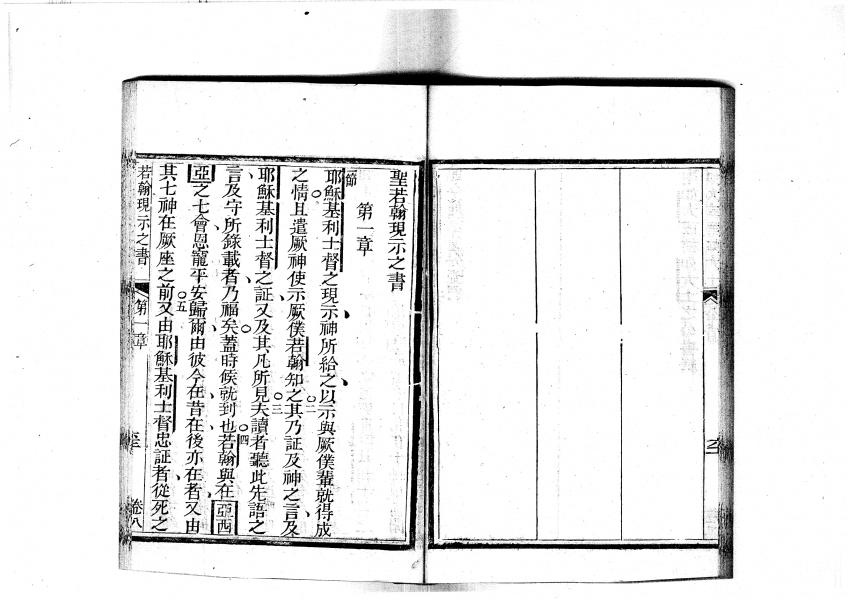 聖若翰現示之書
第一章
節耶穌基利士督之現示神所給之以示與厥僕輩就得成
之情且遣厥神使示厥僕若翰知之○二其乃証及神之言及
耶穌基利士督之証又及其凡所見○三夫讀者聽此先語之
言及守所錄載者乃福矣蓋時候就到也○四若翰與在亞西
亞之七會恩寵平安歸爾由彼今在昔在後亦在者又由
其七神在厥座之前○五又由耶穌基利士督忠証者從死之
若翰現示之書 第一章 卷八